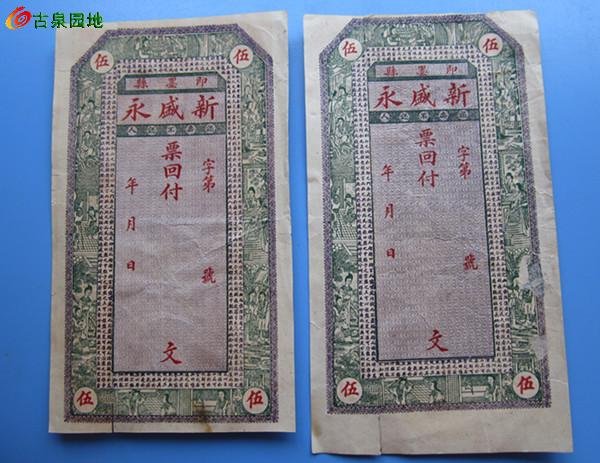 古泉园地
伍
伍
即墨縣
新盛永
字第 號
票回付
文
年 月 日
伍
伍
伍
伍
即墨縣
新盛永
字第 號
票回付
文
年 月 日
伍
伍